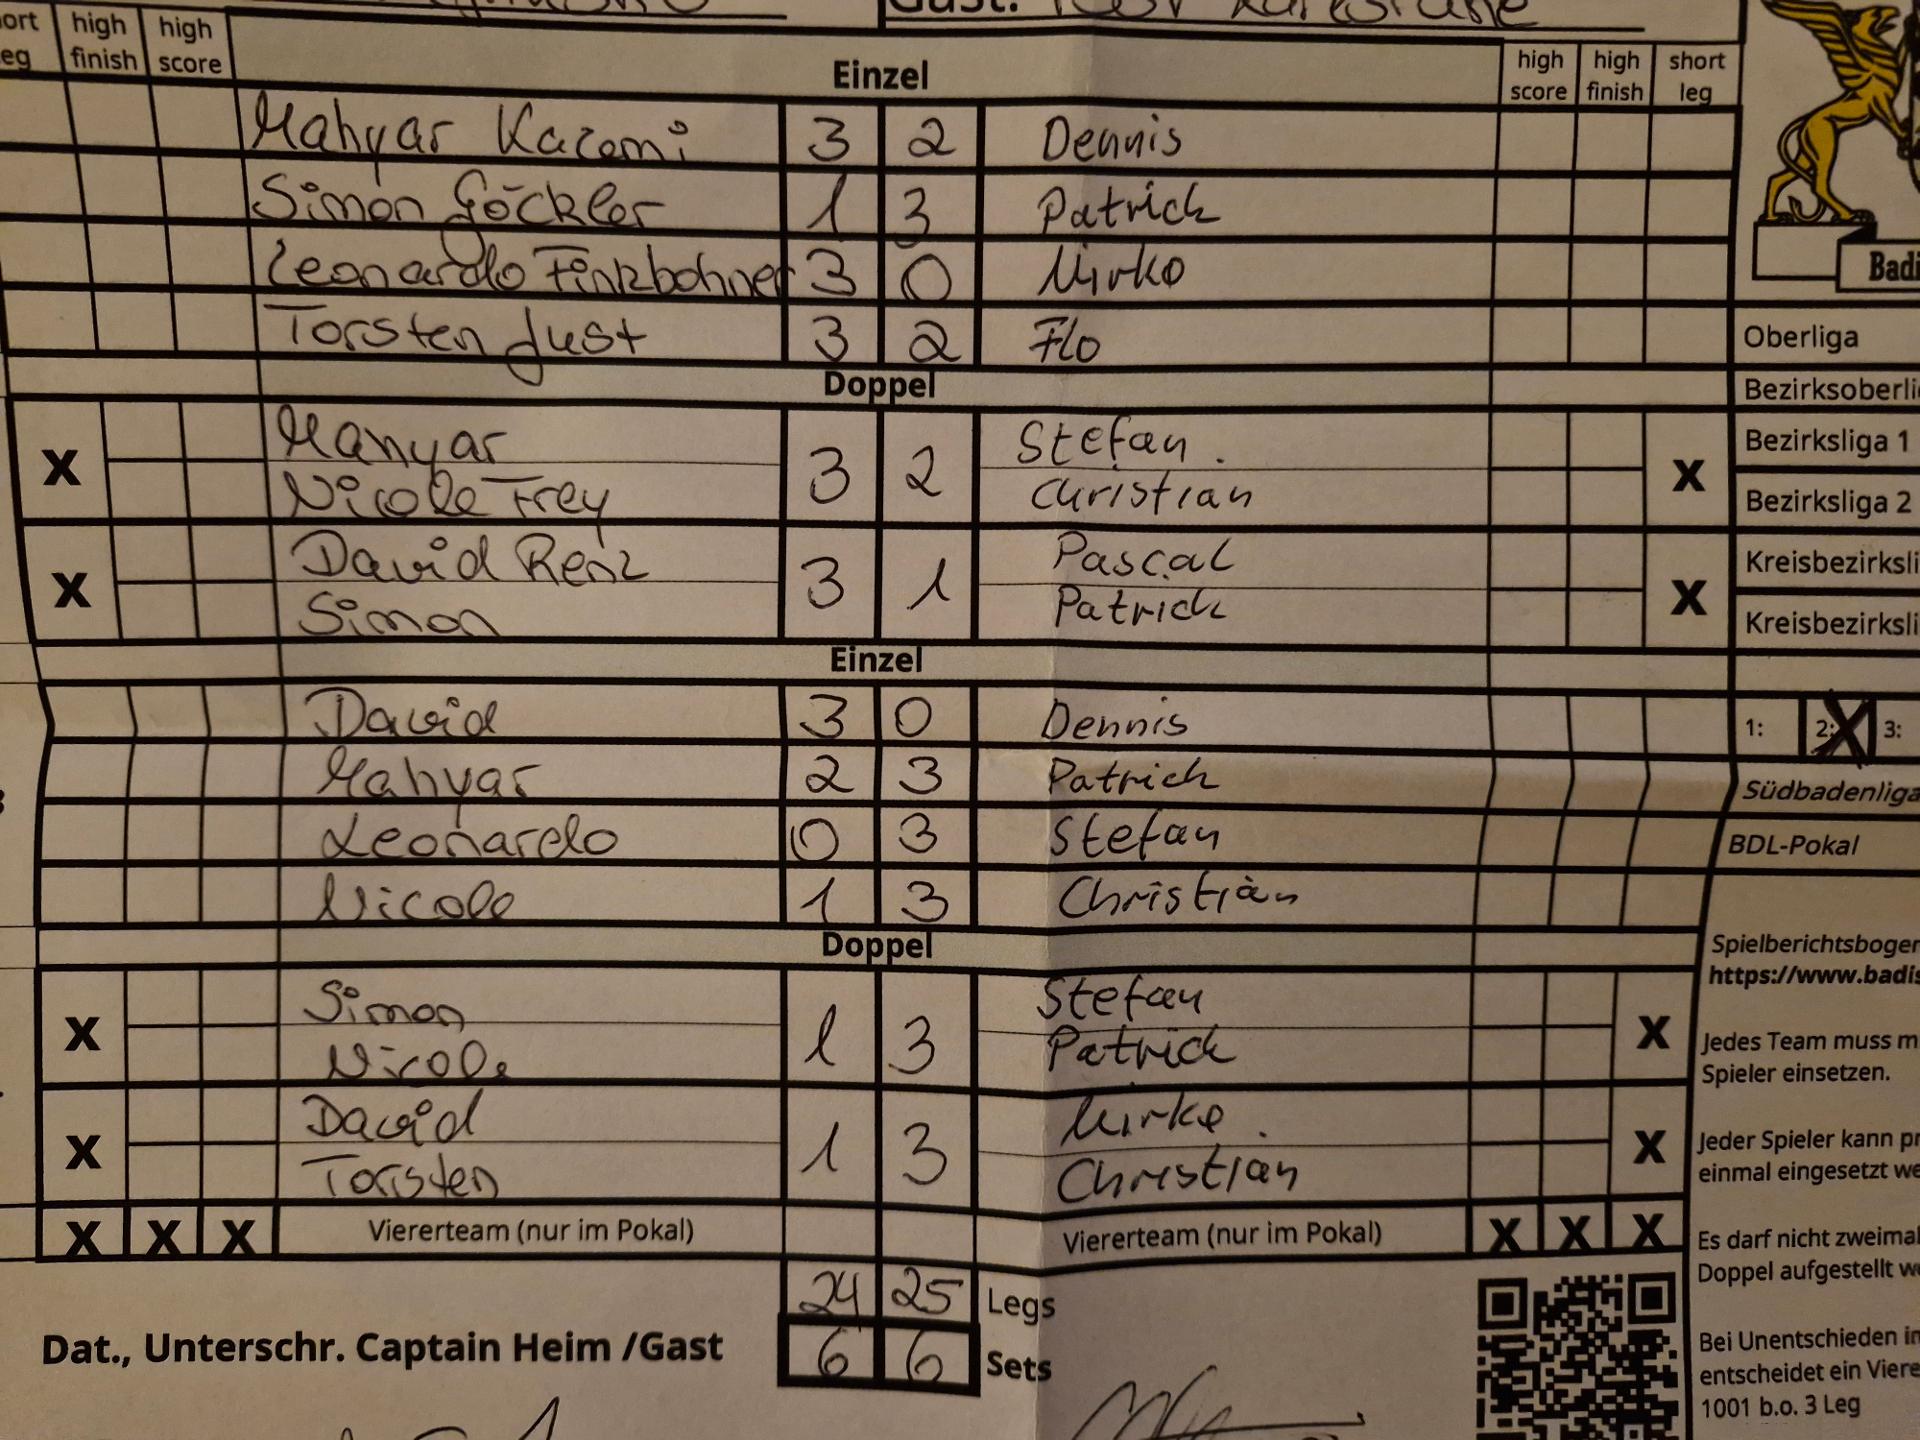 Gast:
high high
finish score
Einzel
high high short
score finish leg
Mahyar Kazemi 3 2 Dennis
Simon Göckler 1 3 Patrick
Leonardo Finkbohner 3 0 Mirko
Torsten Just 3 2 Flo
Oberliga
Doppel
Mahyar Stefan
X 3 2 X
Nicole Frey Christian
Bezirksliga 1
Bezirksliga 2
David Renz Pascal
X 3 1 X
Simon Patrick
Einzel
David 3 0 Dennis
1: 2: X 3:
Mahyar 2 3 Patrick
Südbadenliga
Leonardo 0 3 Stefan
BDL-Pokal
Nicole 1 3 Christian
Doppel
Simon Stefan
X 1 3 X
Nicole Patrick
David Mirko
X 1 3 X
Torsten Christian
X X X Viererteam (nur im Pokal) Viererteam (nur im Pokal) X X X
24 25 Legs
Dat., Unterschr. Captain Heim /Gast 6 6 Sets
https://www.badis
Jedes Team muss m
Spieler einsetzen.
Jeder Spieler kann
einmal eingesetzt
Es darf nicht zweimal
Doppel aufgestellt
Bei Unentschieden
entscheidet ein
1001 b.o. 3 Leg